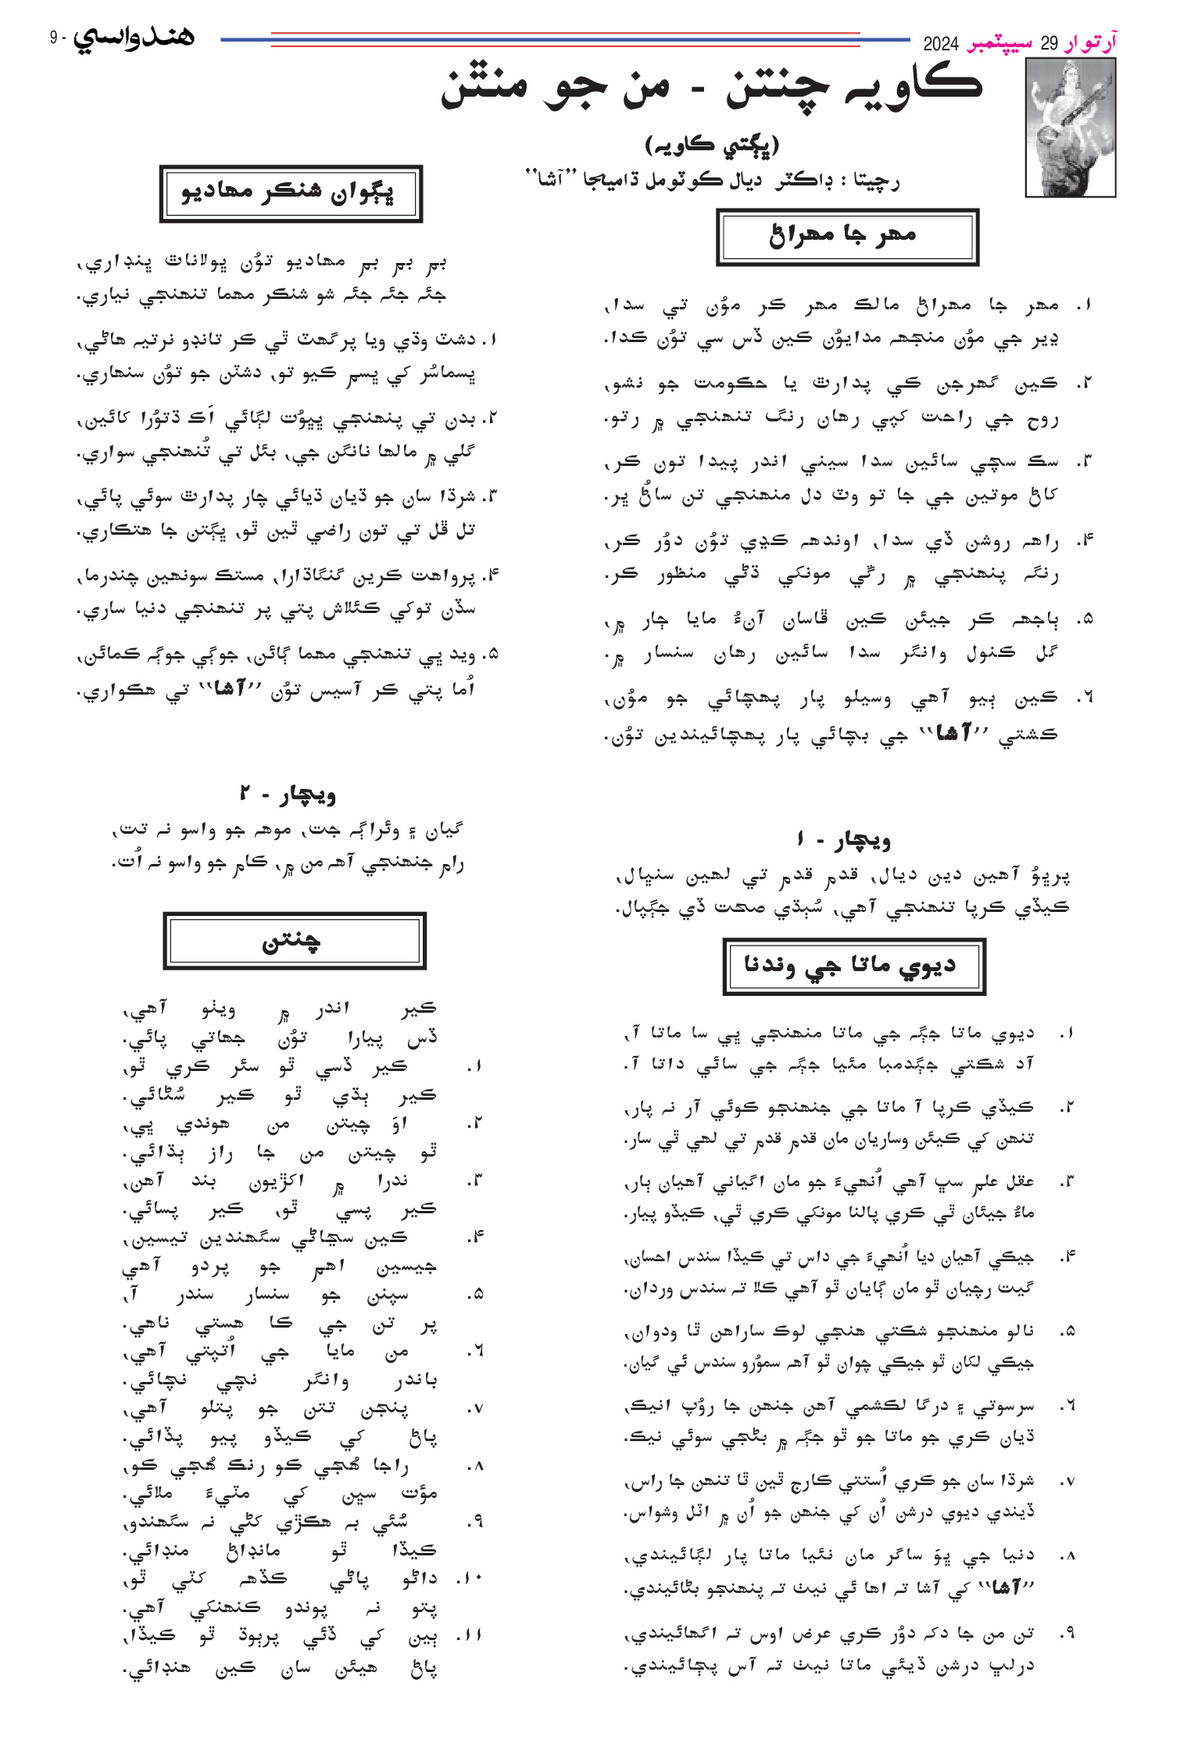 آرتوار 29 سيپٽمبر 2024
هندواسي
9 -
ڪاويہ چنتن - من جو منٿن
(ڀڳتي ڪاويہ)
رچيتا : ڊاڪٽر ديال ڪوٽومل ڌاميجا ”آشا“
مهر جا مهراڻ
۱. مهر جا مهراڻ مالڪ مهر ڪر موُن تي سدا،
ڍير جي موُن منجهہ مدايوُن ڪين ڏس سي توُن ڪدا.
۲. ڪين گهرجن ڪي پدارٿ يا حڪومت جو نشو،
روح جي راحت کپي رهان رنگ تنهنجي ۾ رتو.
۳. سڪ سچي سائين سدا سيني اندر پيدا تون ڪر،
کاڻ موتين جي جا تو وٽ دل منهنجي تن ساڻُ ڀر.
۴. راهہ روشن ڏي سدا، اوندهہ ڪڍي توُن دوُر ڪر،
رنگہ پنهنجي ۾ رڱي مونکي ڌڻي منظور ڪر.
۵. ٻاجهہ ڪر جيئن ڪين ڦاسان آنءُ مايا ڄار ۾،
گل ڪنول وانگر سدا سائين رهان سنسار ۾.
۶. ڪين ٻيو آهي وسيلو پار پهچائي جو موُن،
ڪشتي ”آشا“ جي بچائي پار پهچائيندين توُن.
ويچار - ۱
پرڀوُ آهين دين ديال، قدم قدم تي لهين سنڀال،
ڪيڏي ڪرپا تنهنجي آهي، سُٻڌي صحت ڏي جڳپال.
ديوي ماتا جي وندنا
۱. ديوي ماتا جڳہ جي ماتا منهنجي ڀي سا ماتا آ،
آد شڪتي جڳدمبا مئيا جڳہ جي سائي داتا آ.
۲. ڪيڏي ڪرپا آ ماتا جي جنهنجو ڪوئي آر نہ پار،
تنهن کي ڪيئن وساريان مان قدم قدم تي لهي ٿي سار.
۳. عقل علم سڀ آهي اُنهيءَ جو مان اگياني آهيان ٻار،
ماءُ جيئان ٿي ڪري پالنا مونکي ڪري ٿي، ڪيڏو پيار.
۴. جيڪي آهيان ديا اُنهيءَ جي داس تي ڪيڏا سندس احسان،
گيت رچيان ٿو مان ڳايان ٿو آهي ڪلا تہ سندس وردان.
۵. نالو منهنجو شڪتي هنجي لوڪ ساراهن ٿا ودوان،
جيڪي لکان ٿو جيڪي چوان ٿو آهہ سموُرو سندس ئي گيان.
۶. سرسوتي ۽ درگا لڪشمي آهن جنهن جا روُپ انيڪ،
ڌيان ڪري جو ماتا جو ٿو جڳہ ۾ بڻجي سوئي نيڪ.
۷. شرڌا سان جو ڪري اُستتي ڪارج ٿين ٿا تنهن جا راس،
ڏيندي ديوي درشن اُن کي جنهن جو اُن ۾ اٽل وشواس.
۸. دنيا جي ڀوَ ساگر مان نئيا ماتا پار لڳائيندي،
”آشا“ کي آشا تہ اها ئي نيٺ تہ پنهنجو بڻائيندي.
۹. تن من جا دکہ دوُر ڪري عرض اوس تہ اگهائيندي،
درلڀ درشن ڏيئي ماتا نيٺ تہ آس پڄائيندي.
ڀڳوان شنڪر مهاديو
بم بم بم مهاديو توُن ڀولاناٿ ڀنڊاري،
جئہ جئہ جئہ شو شنڪر مهما تنهنجي نياري.
۱. دشٽ وڌي ويا پرگهٽ ٿي ڪر تانڊو نرتيہ هاڻي،
ڀسماسُر کي ڀسم ڪيو تو، دشٽن جو توُن سنهاري.
۲. بدن تي پنهنجي ڀڀوُت لڳائي اَڪ ڌتوُرا کائين،
گلي ۾ مالها نانگن جي، بئل تي تُنهنجي سواري.
۳. شرڌا سان جو ڌيان ڌيائي چار پدارٿ سوئي پائي،
تل ڦل تي تون راضي ٿين ٿو، ڀڳتن جا هتڪاري.
۴. پرواهت ڪرين گنگاڌارا، مستڪ سونهين چندرما،
سڏن توکي ڪئلاش پتي پر تنهنجي دنيا ساري.
۵. ويد ڀي تنهنجي مهما ڳائن، جوڳي جوڳہ ڪمائن،
اُما پتي ڪر آسيس توُن ”آشا“ تي هڪواري.
ويچار - ۲
گيان ۽ وئراڳہ جت، موهہ جو واسو نہ تت،
رام جنهنجي آهہ من ۾، ڪام جو واسو نہ اُت.
چنتن
ڪير اندر ۾ ويٺو آهي،
ڏس پيارا توُن جهاتي پائي.
۱. ڪير ڏسي ٿو سئر ڪري ٿو،
ڪير ٻڌي ٿو ڪير سُڻائي.
۲. اوَ چيتن من هوندي ڀي،
ٿو چيتن من جا راز ٻڌائي.
۳. ندرا ۾ اکڙيون بند آهن،
ڪير پسي ٿو، ڪير پسائي.
۴. ڪين سڃاڻي سگهندين تيسين،
جيسين اهم جو پردو آهي
۵. سپنن جو سنسار سندر آ،
پر تن جي ڪا هستي ناهي.
۶. من مايا جي اُتپتي آهي،
باندر وانگر نچي نچائي.
۷. پنجن تتن جو پتلو آهي،
پاڻ کي ڪيڏو پيو پڏائي.
۸. راجا هُجي ڪو رنڪ هُجي ڪو،
موُت سڀن کي مٽيءَ ملائي.
۹. سُئي بہ هڪڙي کڻي نہ سگهندو،
ڪيڏا ٿو مانڊاڻ منڊائي.
۱۰. داڻو پاڻي ڪڏهہ کٽي ٿو،
پتو نہ پوندو ڪنهنکي آهي.
۱۱. ٻين کي ڏئي پرٻوڌ ٿو ڪيڏا،
پاڻ هيئن سان ڪين هنڊائي.